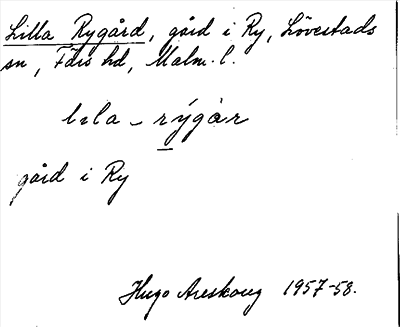 Lilla Rygård, gård i Ry, Lövestads
sn, Färs hd, Malm. l.
lɩla - rýgår
gård i Ry
Hugo Areskoug 1957-58.